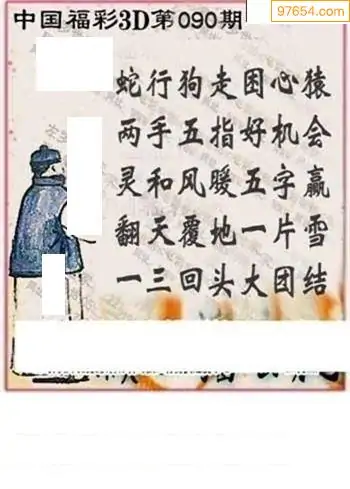 中国福彩3D第090期
97654.com
蛇行狗走困心猿
两手五指好机会
灵和风暖五字赢
翻天覆地一片雪
一三回头大团结